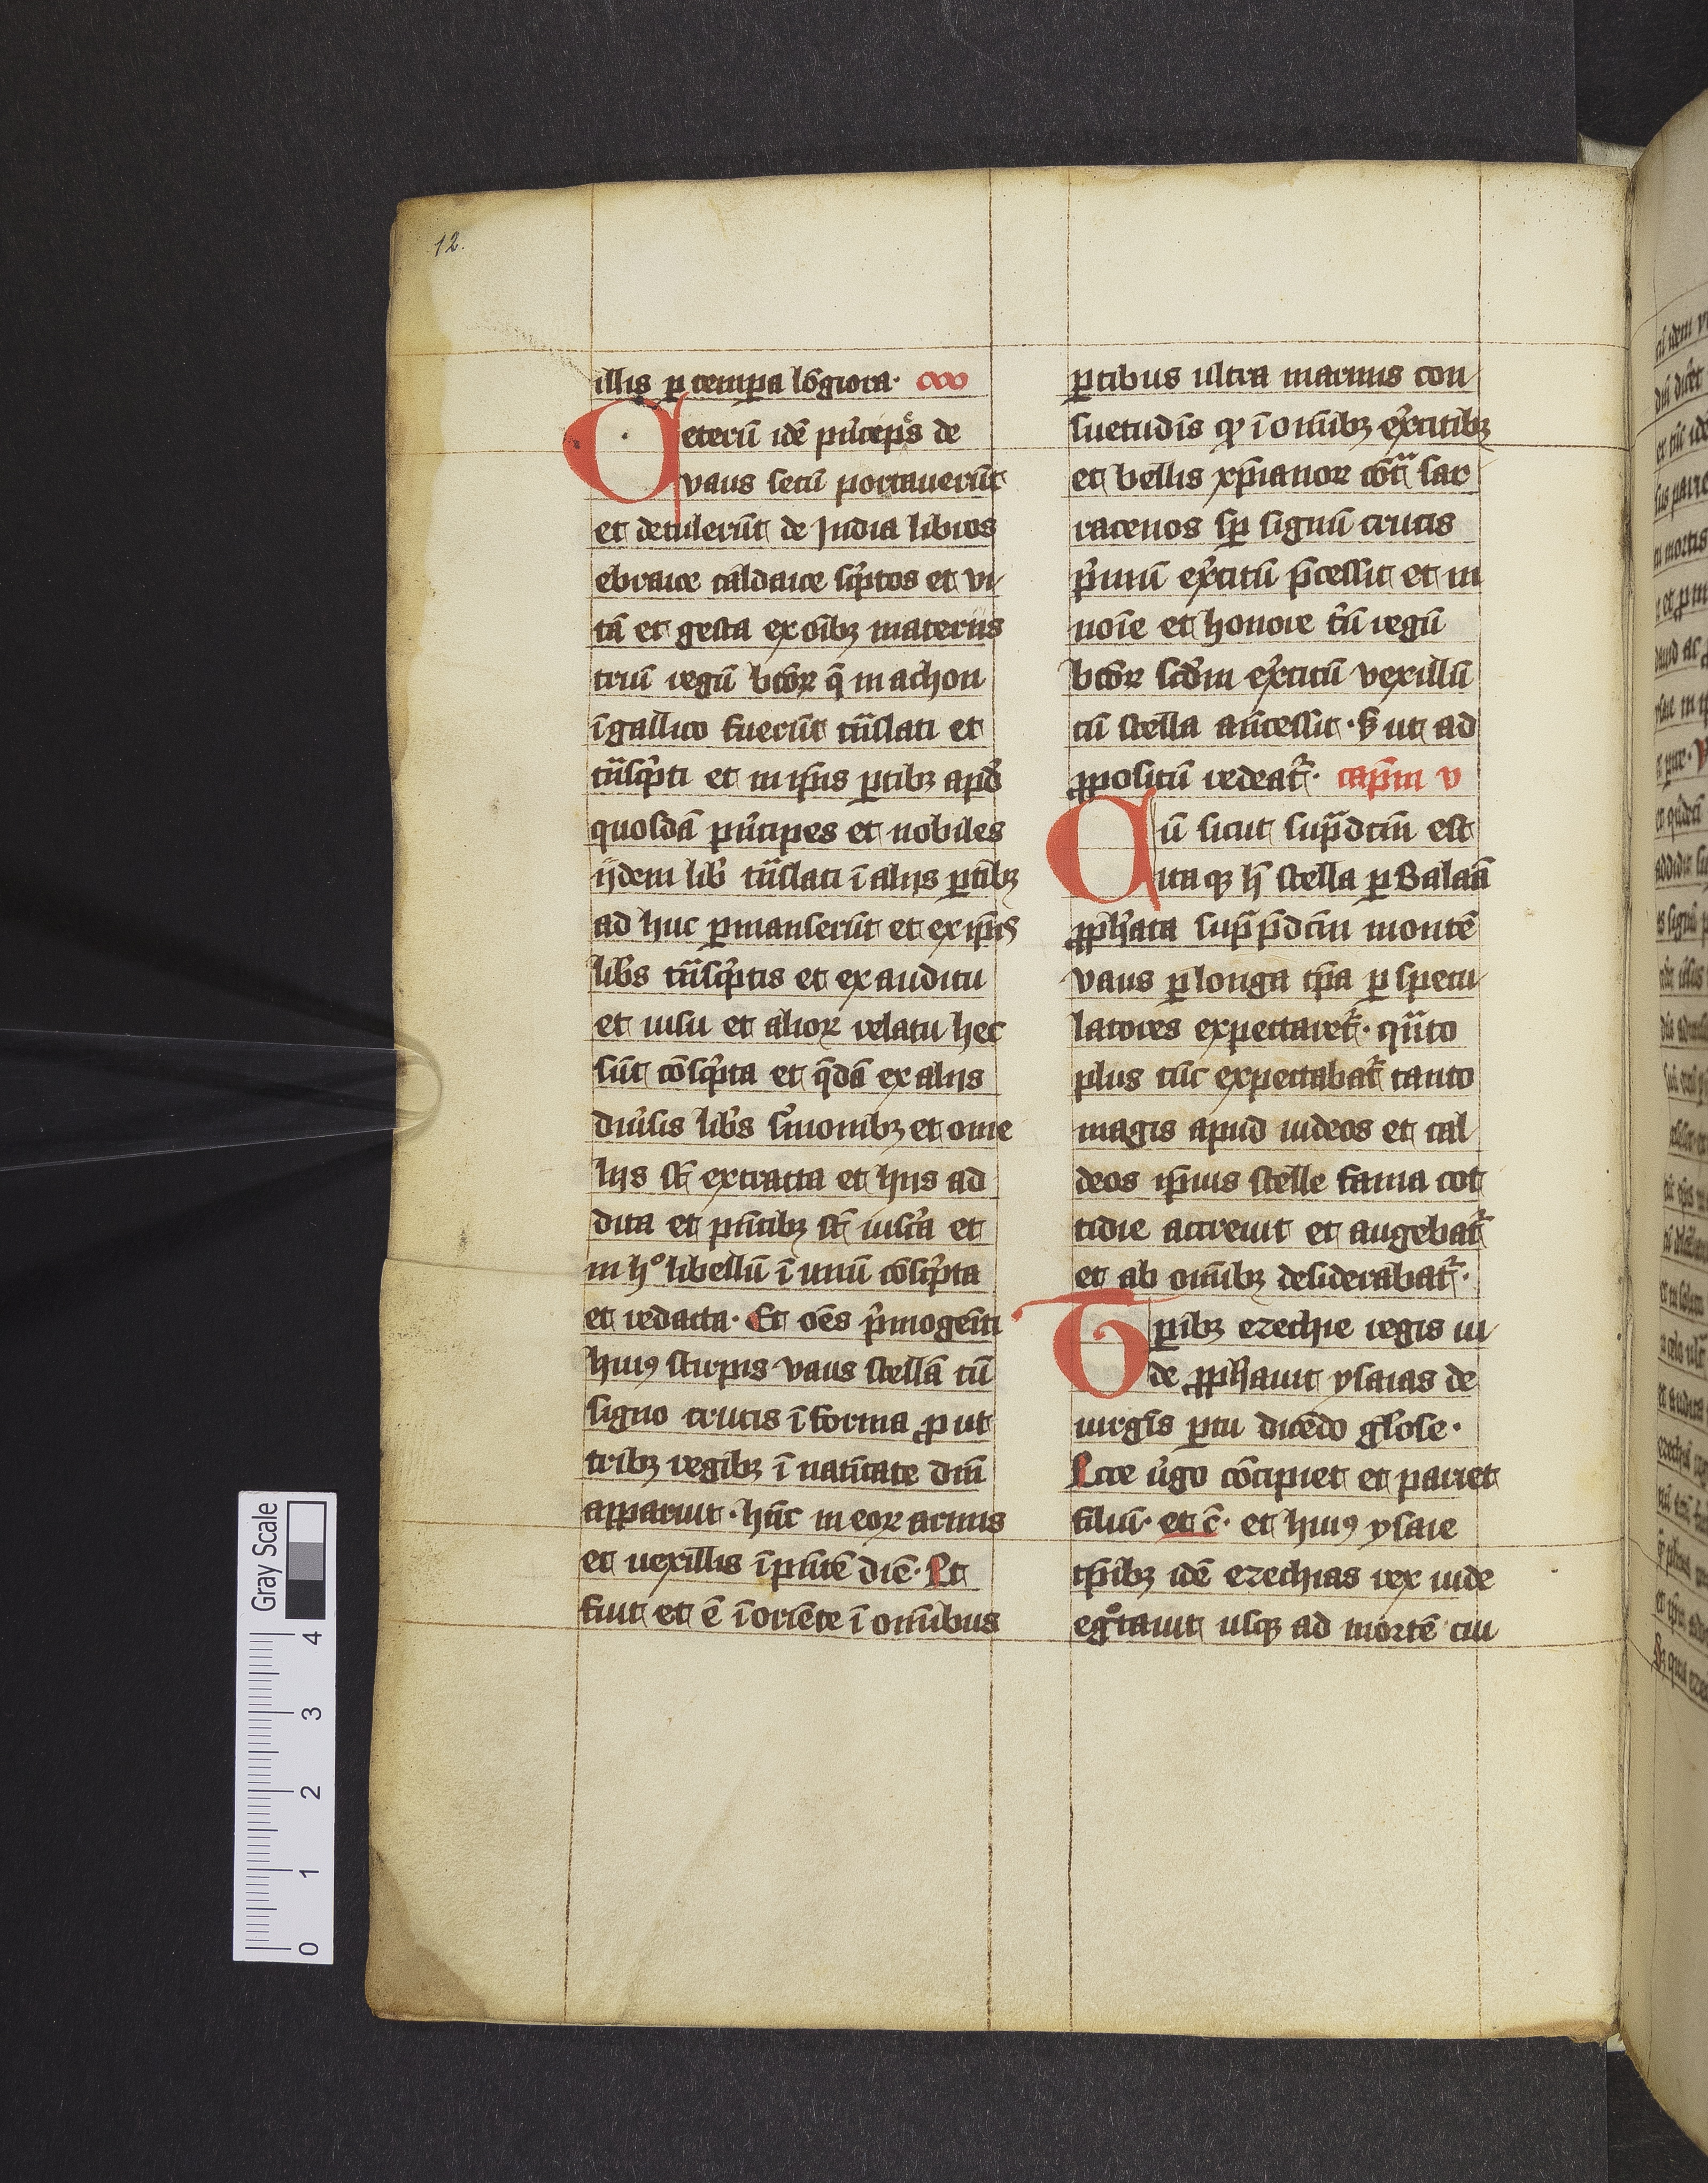 12.
illis ꝑ temꝑa lo᷑giora·
eterū idē pͥncep̄s de
vaus secū portauerūt
et detulerūt de India libros
ebraice caldaice sc̄ptos et vi
tā et gesta ex oīb₃ materiis
triū regū bt̄oꝝ q̄ in achon
ī gallico fuerūt tn̄slati et
tn̄scͥpti et in ip̄is ꝑtib₃ apd̄
quosdā pͥncipes et nobiles
ijdem libͥ tn̄slati ī aliis ꝑtib₃
ad huc ꝑmanserūt et ex ip̄is
libͥs tn̄scͥptis et ex auditu
et uisu et alioꝝ relatu hec
sūt cōscͥpta et q̄dā ex aliis
diūsis libͥs s̄monib₃ et ome
liis st̄ extracta et hiis ad
dita et pn̄tib₃ st̄ inscͥta et
in h° libellū ī unū cōscͥpta
et redacta· Et oēs pͥmogeīti
huiꝰ stirpis vaus stellā cū
signo crucis ī forma ꝓ ut
trib₃ regib₃ ī natītate dn̄i
apparuit· hūc in eoꝝ armis
et uexillis ī pn̄tē diē· Et
fuit et ē ī oriēte ī om̄ibus
ꝑtibus ultra marinis con
suetudīs ꝙ ī om̄ib₃ ex̄citib₃
et bellis xp̄ianoꝝ cōtͣ sar
racenos sꝑ signū crucis
pͥmū ex̄citū p̄cessit et in
noīe et honore tͥū regū
bt̄oꝝ scd̄m ex̄citū vexillū
cū stella an̄cessit· S̄ ut ad
ꝓpositū redeat᷑· cap̄m v
Cū sicut sup̄dcm̄ est
itaq₃ h̄ stella ꝑ Balaā
ꝓph̄ata sup̄ p̄dcm̄ montē
vaus ꝑ longa tp̄a ꝑ specu
latores expectaret᷑· qn̄to
plus tūc expectabat᷑ tanto
magis apud iudeos et cal
deos ip̄ius stelle fama cot
tidie accreuit et augebat᷑
et ab om̄ib₃ desiderabat᷑·
Tꝑib₃ ezechie regis iu
de ꝓph̄auit ysaias de
uirgīs ꝑtu dicēdo gl̄ose·
Ecce v̄go cōcipiet et pariet
filiū· et c̄· et huiꝰ ysaie
tp̄ib₃ idē ezechias rex iude
eg°tauit usq₃ ad mortē cui
Gray Scale
0 1 2 3 4